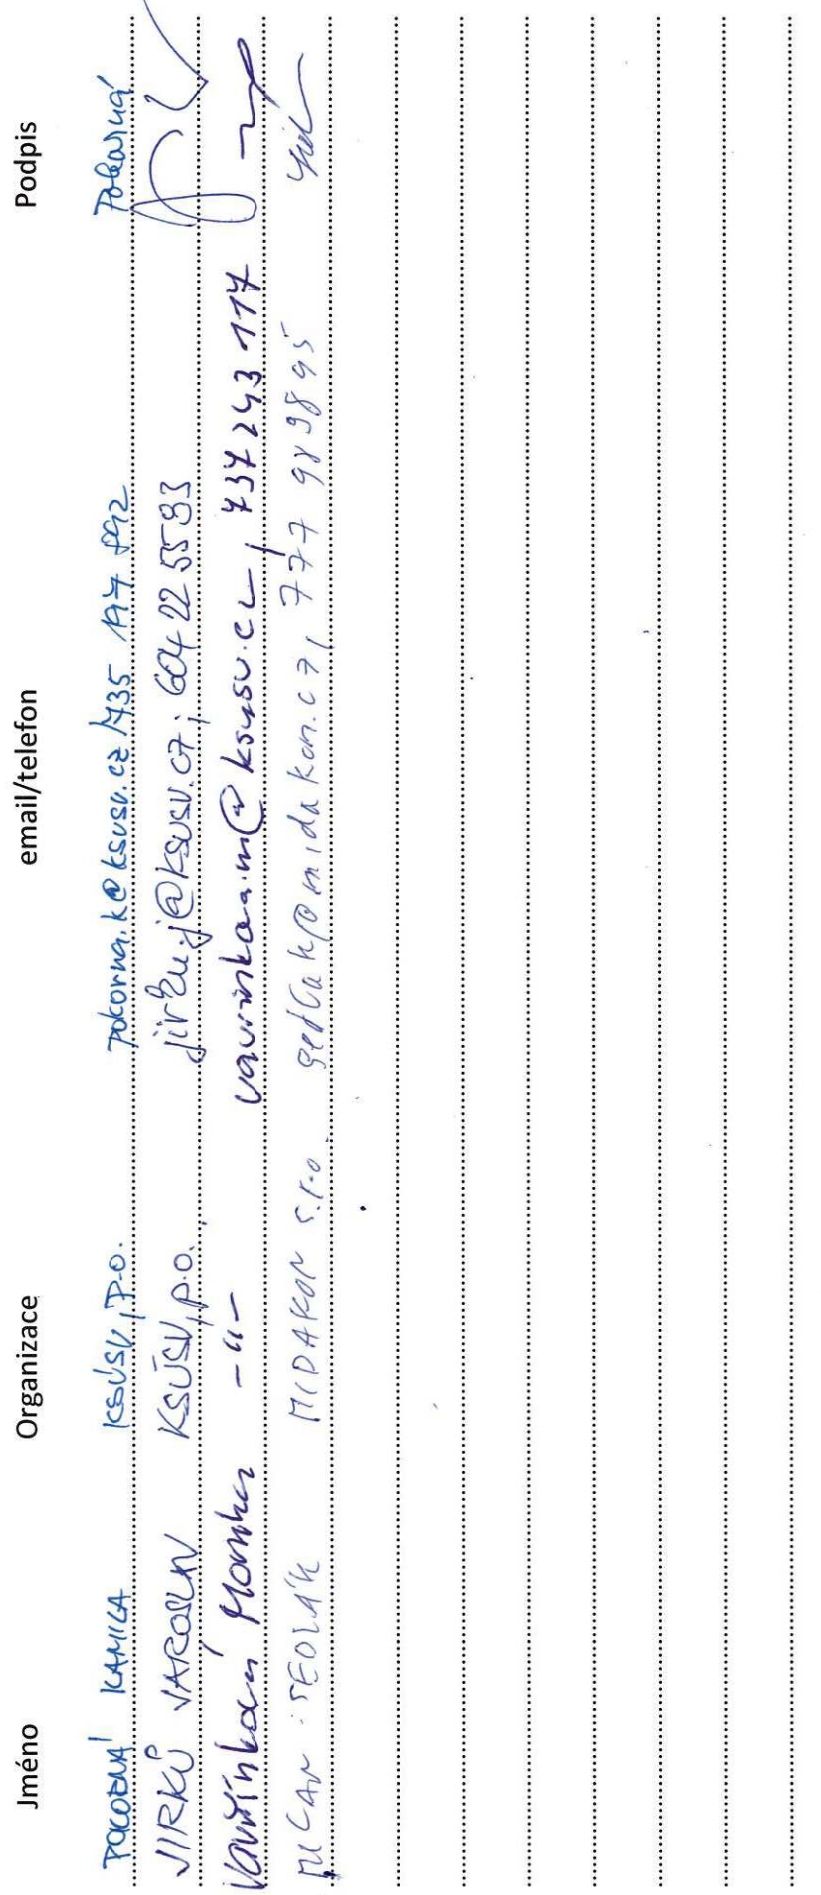 Jméno Organizace email/telefon Podpis
POKORNÁ KAMILA KSÚSV, p.o. pokorna.k@ksusv.cz / 735 197 892 Pokorná
JIRKŮ JAROSLAV KSÚSV, p.o. jirku.j@ksusv.cz; 604 22 55 83
Vavřínková Monika -"- vavrinkova.m@ksusv.cz, 737 243 117
MILAN SEDLÁK MIDAKON s.r.o. sedlak@midakon.cz, 777 989895